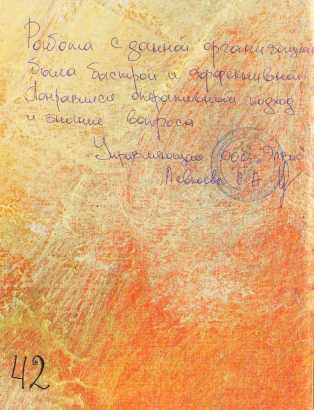 Работа с данной организацией
была быстрой и эффективной
Понравился оперативный подход
и знание вопроса
Управляющий ООО
42